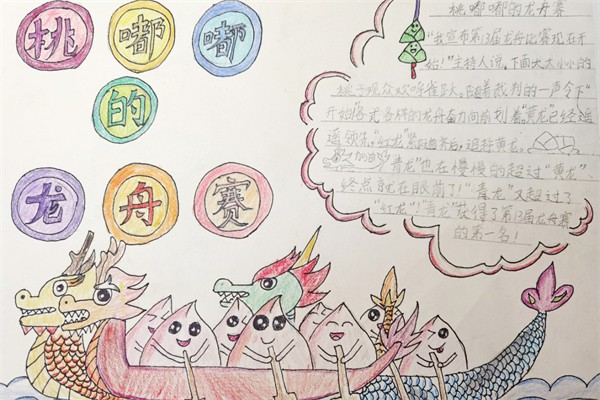 桃嘟嘟
的
龙舟赛
桃嘟嘟的龙舟赛
"我宣布第13届龙舟比赛现在开
始!"主持人说,下面大大小小的
桃子观众欢呼雀跃。随着裁判的一声令下"
开始!"各式各样的龙舟奋力向前划着,"黄龙"已经遥
遥领先,"红龙"紧跟其后,追赶黄龙。
"青龙"也在慢慢的超过"黄龙"、
终点就在眼前了!"青龙"又超过了
"红龙"!"青龙"获得了第13届龙舟赛
的第一名!